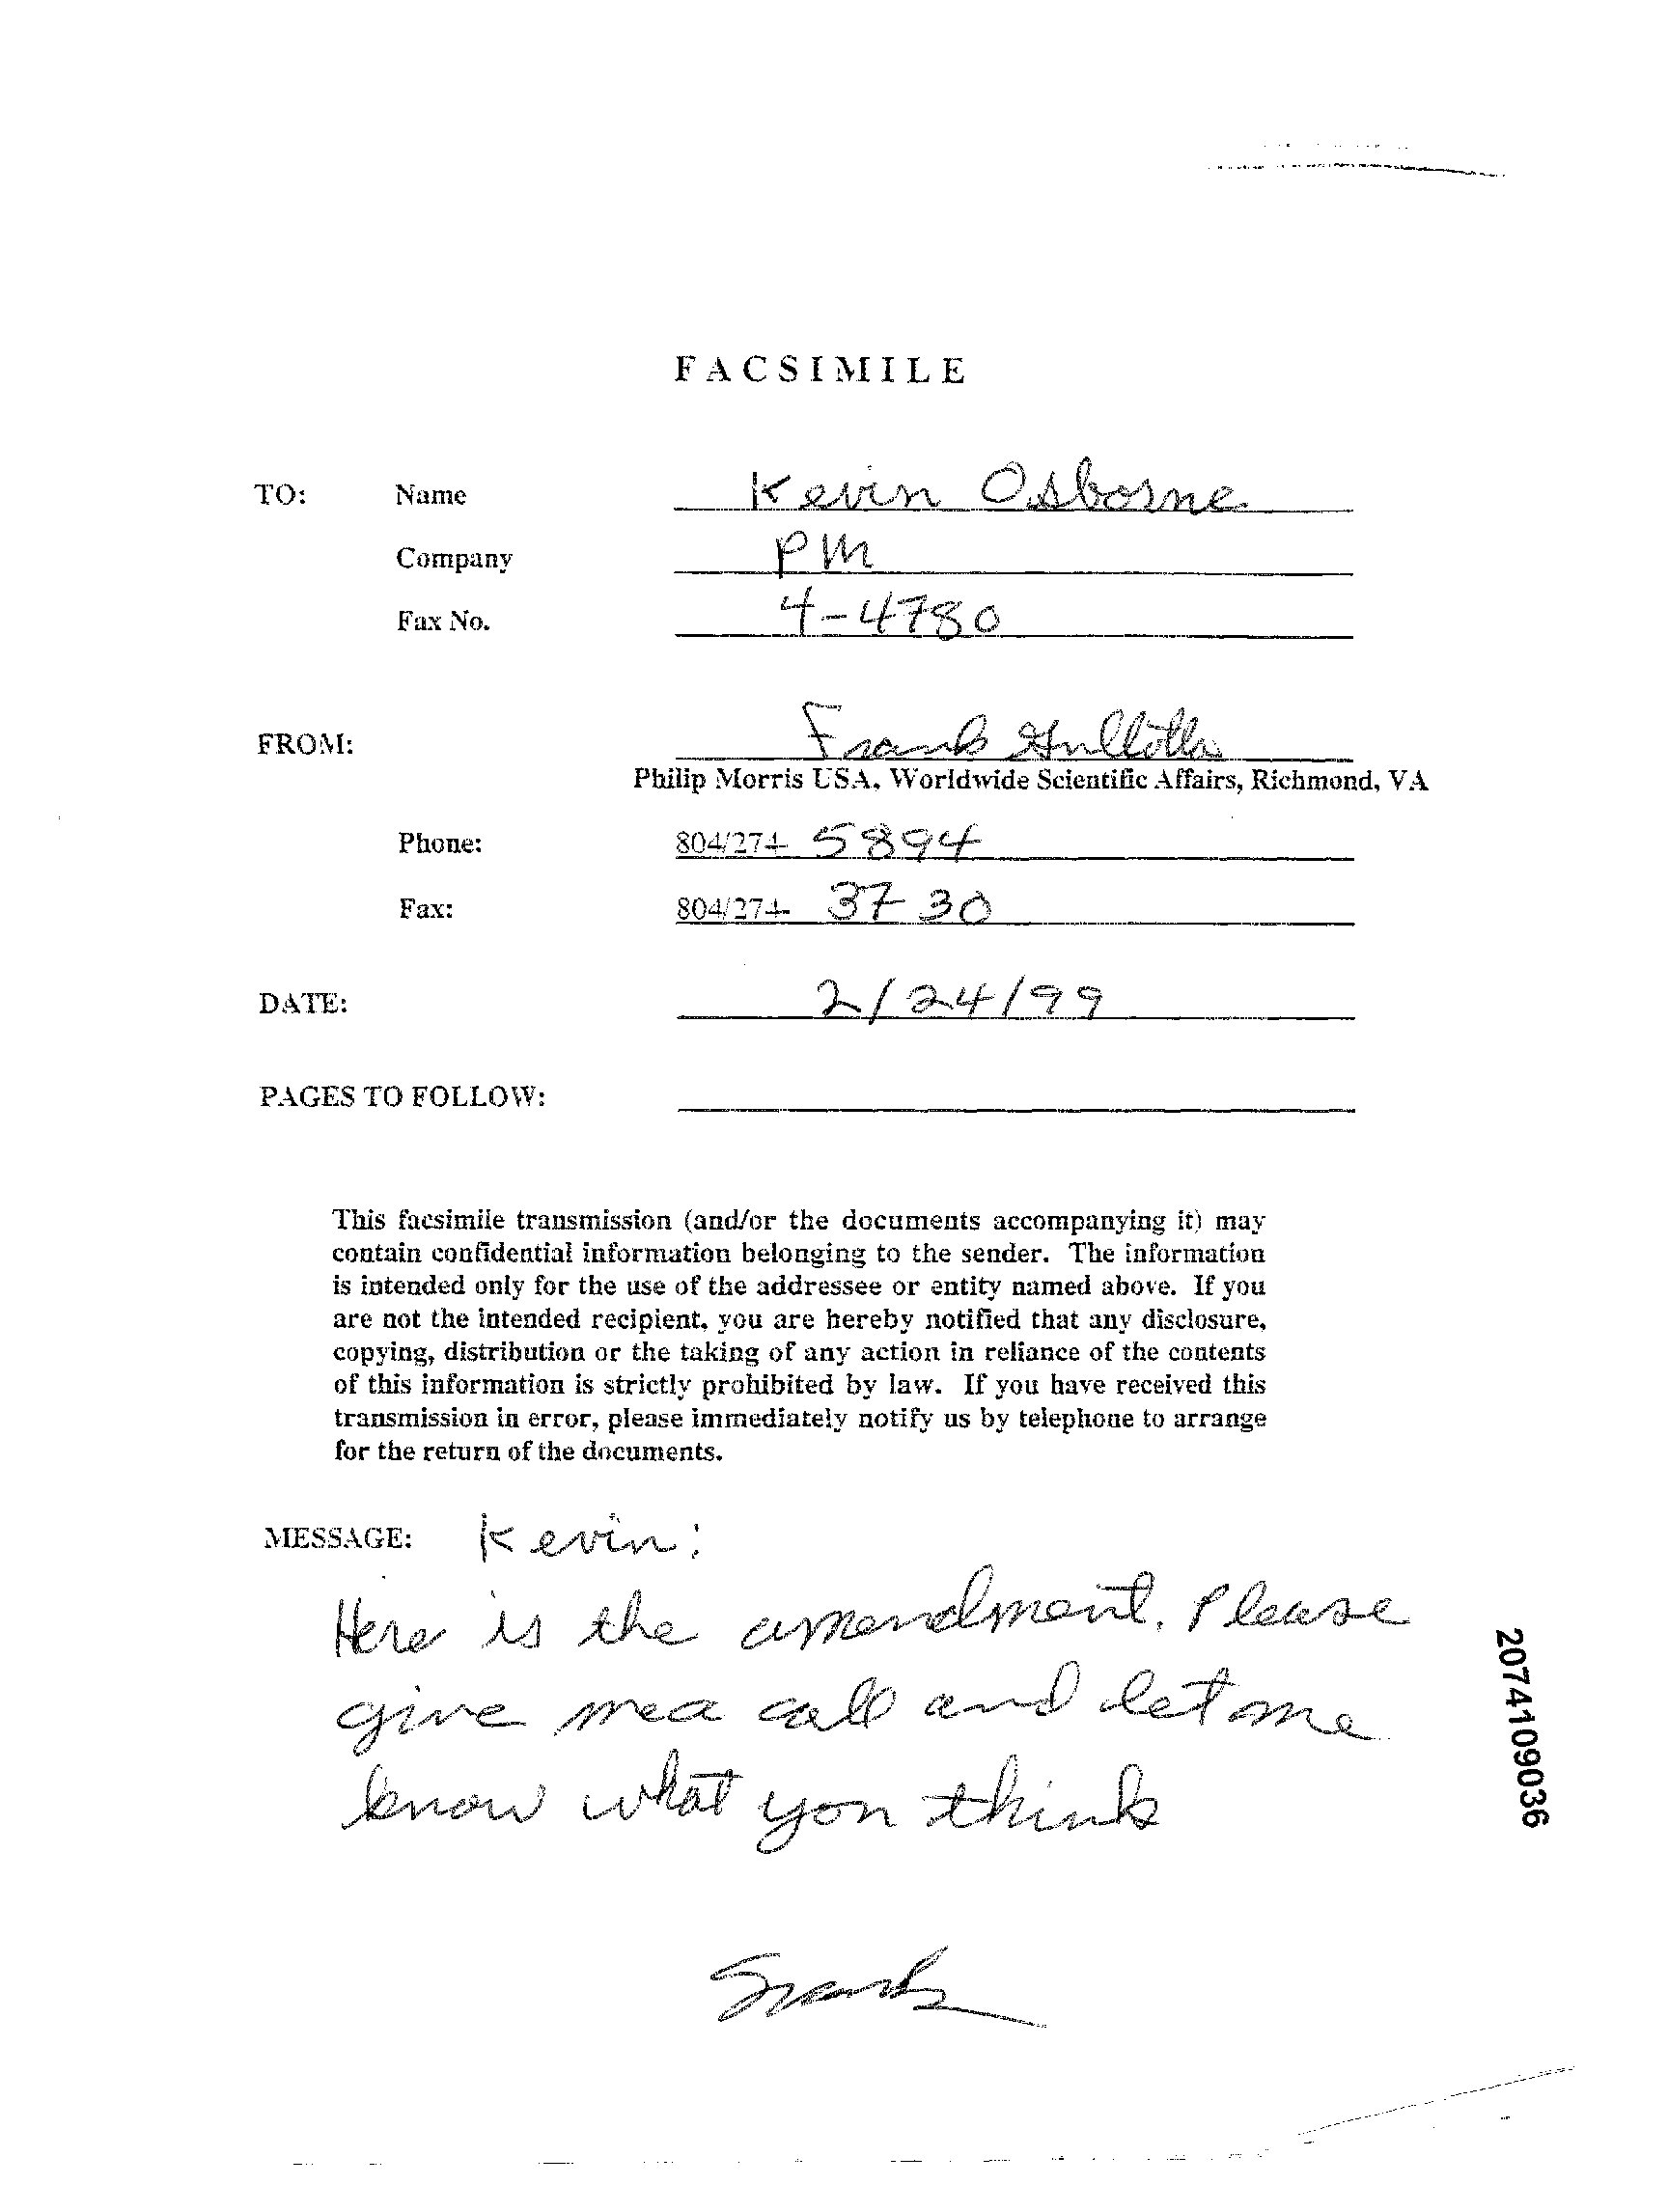 FACSIMILE
TO: Name Kevin Osborne
Company PM
Fax No. 4-4780
FROM: Frank Gullotta
Philip Morris USA, Worldwide Scientific Affairs, Richmond, VA
Phone: 804/274- 5894
Fax: 804/274- 3730
DATE: 2/24/99
PAGES TO FOLLOW:
This facsimile transmission (and/or the documents accompanying it) may
contain confidential information belonging to the sender. The information
is intended only for the use of the addressee or entity named above. If you
are not the intended recipient, you are hereby notified that any disclosure,
copying, distribution or the taking of any action in reliance of the contents
of this information is strictly prohibited by law. If you have received this
transmission in error, please immediately notify us by telephone to arrange
for the return of the documents.
MESSAGE: Kevin:
Here is the amendment. Please
give me a call and let me
know what you think
Frank
2074109036